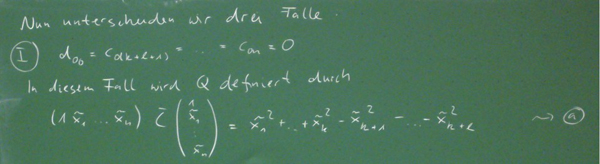 Nun unterscheiden wir drei Fälle.
I d₀₀ = c₀(k+l+1) = ... = c₀ₙ = 0
In diesem Fall wird Q definiert durch
(1 x̃₁ ... x̃ₙ) C̃ (1 x̃₁ ⋮ x̃ₙ) = x̃₁² + ... + x̃ₖ² - x̃ₖ₊₁² - ... - x̃ₖ₊ₗ² ⤳ a